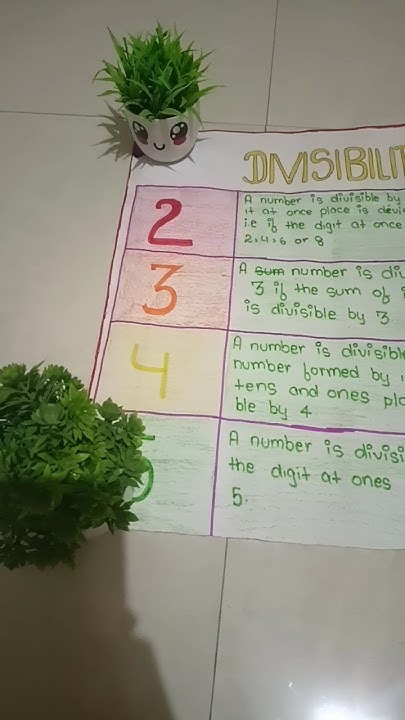 DIVISIBILIT
2
A number is divisible by
it at once place is devis
i.e if the digit at once
2,4,6 or 8
3
A sum number is div
3 if the sum of
is divisible by 3
4
A number is divisible
number formed by
tens and ones pla
ble by 4.
5
A number is divisi
the digit at ones
5.